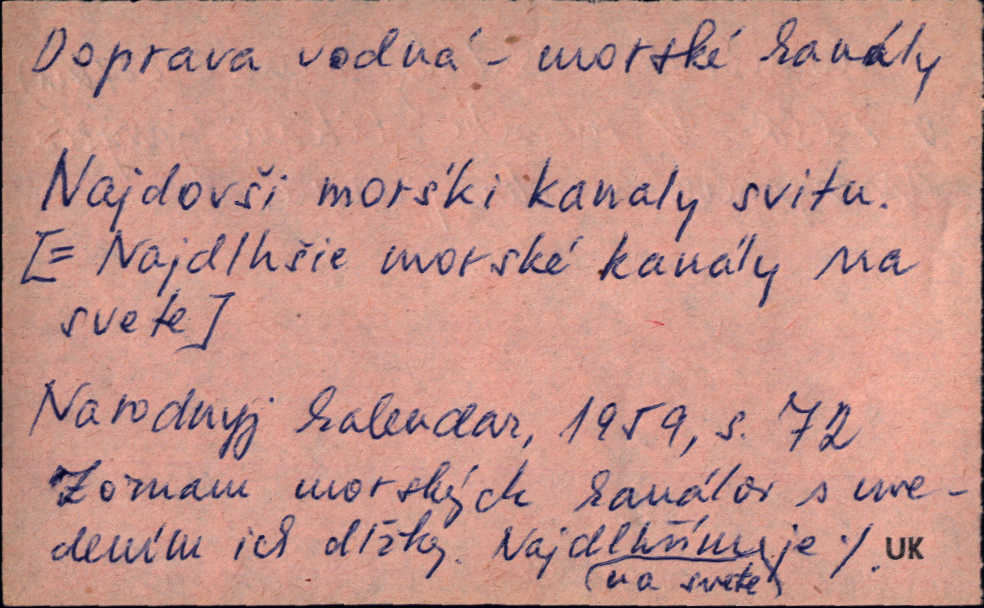 Doprava vodná - morské kanály
Najdovši morśki kanaly svitu.
[= Najdlhšie morské kanály na
svete]
Narodnyj kalendar, 1959, s. 72
Zoznam morských kanálov s uve-
dením ich dĺžky. Najdlhším je ./. UK
(na svete)